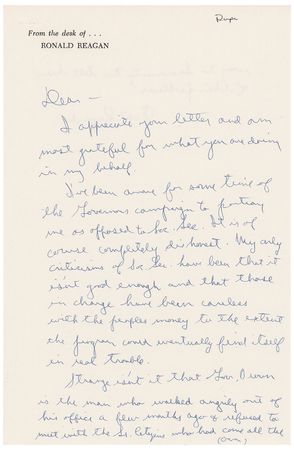 From the desk of . . .
RONALD REAGAN
Dear –
I appreciate your letter and am
most grateful for what you are doing
in my behalf
I've been aware for some time of
the Governors campaign to portray
me as opposed to Soc. Sec. It is of
course completely dishonest. My only
criticisms of Soc. Sec. have been that it
isn't good enough and that those
in charge have been careless
with the peoples money to the extent
the program could eventually find itself
in real trouble.
Strange isn't it that Gov. Brown
is the man who walked angrily out of
his office a few months ago & refused to
meet with the Sr. Citizens who had come all the
(over)